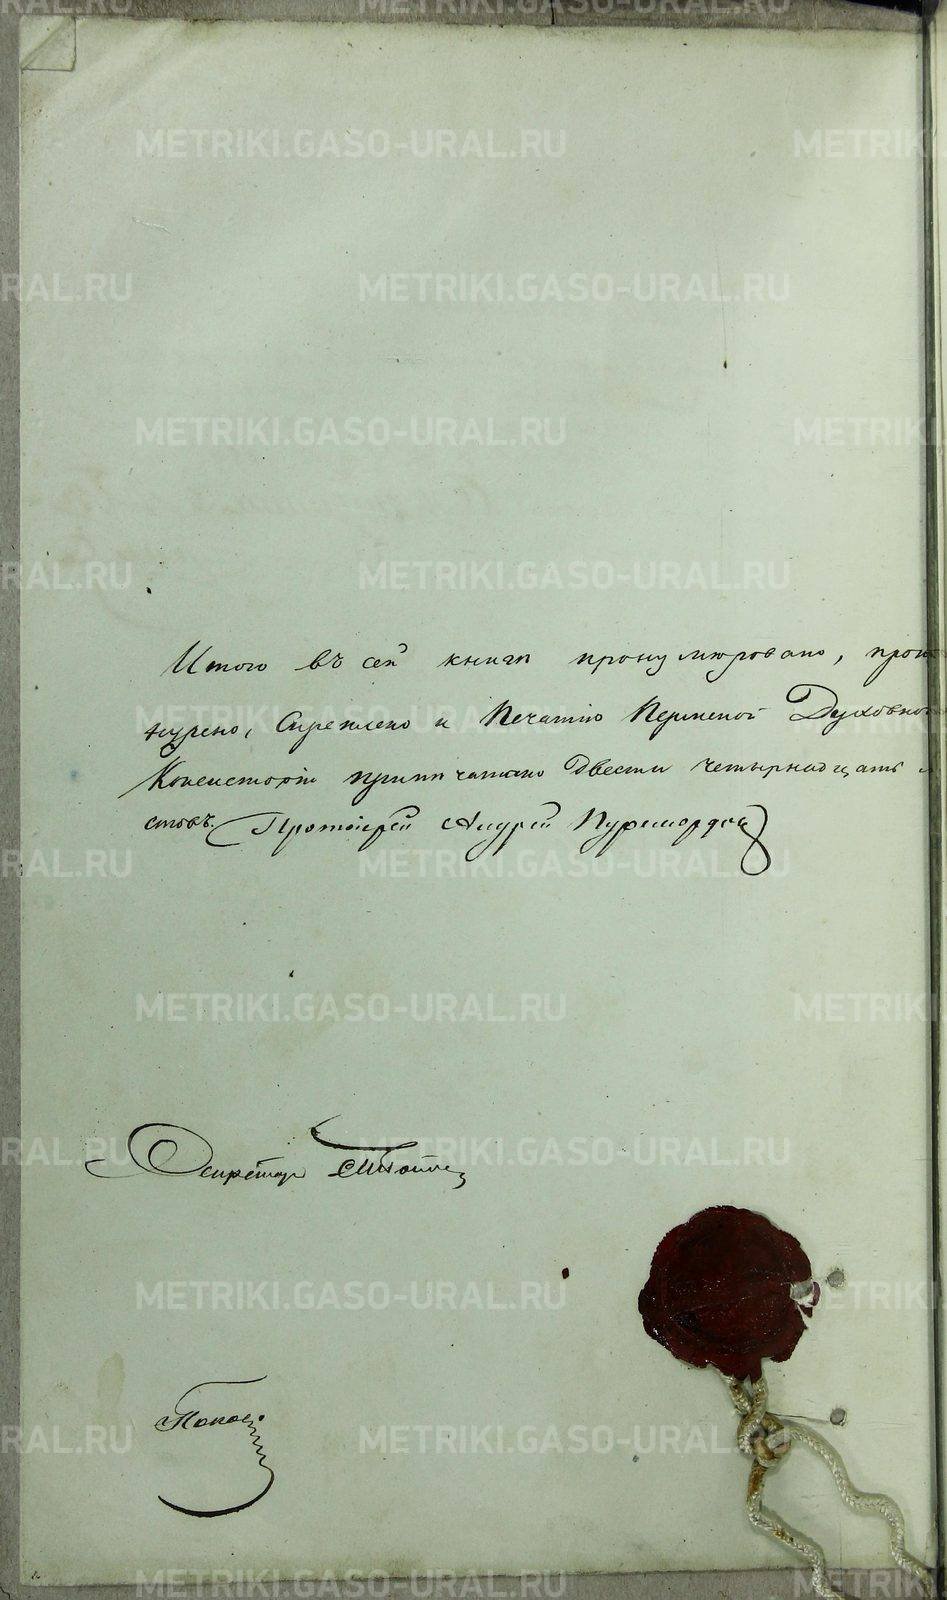 METRIKI.GASO-URAL.RU
METRIKI.GASO-URAL.RU METRIKI
RAL.RU METRIKI.GASO-URAL.RU
METRIKI.GASO-URAL.RU METRIKI
RAL.RU METRIKI.GASO-URAL.RU
Итого въ сей книги пронумеровано, прош
нурено, Скреплено и Печатію Пермской Духовной
RAL.RU METRIKI.GASO-URAL.RU
Консисторіи припечатано Двести четырнадцать
стовъ. Протоіерей Андрей
RAL.RU METRIKI.GASO-URAL.RU
METRIKI.GASO-URAL.RU METRIKI
Секретарь
RAL.RU METRIKI.GASO-URAL.RU
METRIKI.GASO-URAL.RU METRIKI
Попов
RAL.RU METRIKI.GASO-URAL.RU
METRIKI.GASO-URAL.RU METRIKI